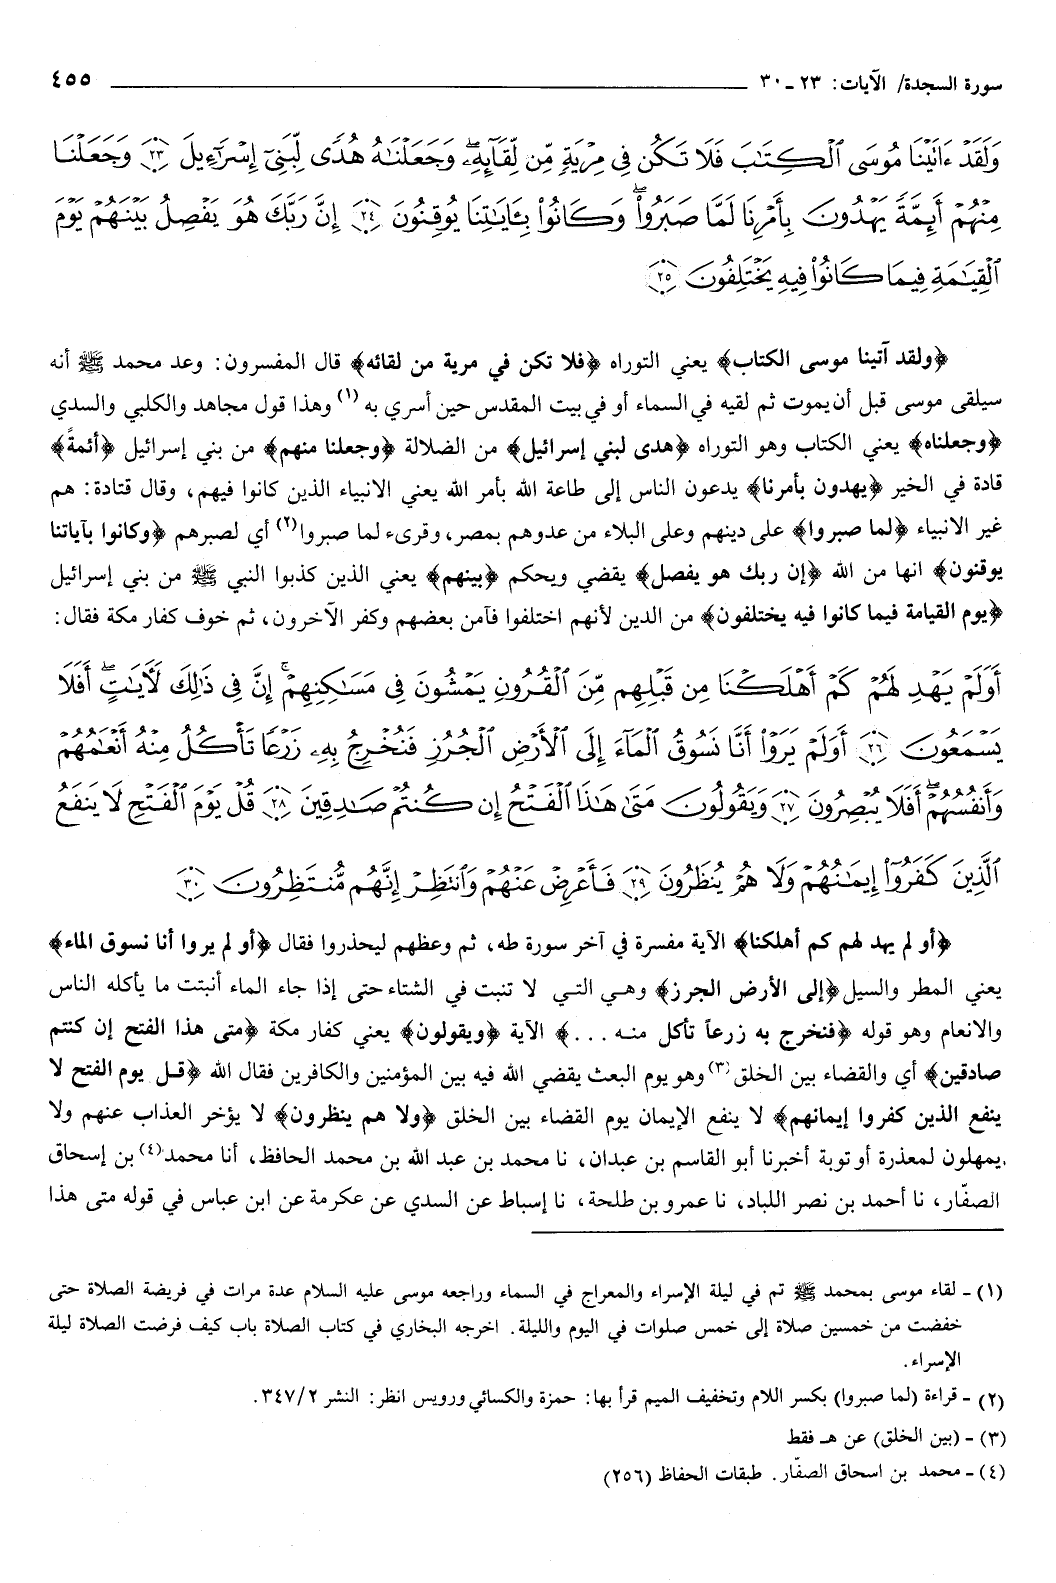 سورة السجدة/ الآيات: ٢٣ ـ ٣٠ ٤٥٥
وَلَقَدْ ءَاتَيْنَا مُوسَى ٱلْكِتَٰبَ فَلَا تَكُن فِى مِرْيَةٍ مِّن لِّقَآئِهِۦ ۖ وَجَعَلْنَٰهُ هُدًى لِّبَنِىٓ إِسْرَٰٓءِيلَ ﴿٢٣﴾ وَجَعَلْنَا
مِنْهُمْ أَئِمَّةً يَهْدُونَ بِأَمْرِنَا لَمَّا صَبَرُوا۟ ۖ وَكَانُوا۟ بِـَٔايَٰتِنَا يُوقِنُونَ ﴿٢٤﴾ إِنَّ رَبَّكَ هُوَ يَفْصِلُ بَيْنَهُمْ يَوْمَ
ٱلْقِيَٰمَةِ فِيمَا كَانُوا۟ فِيهِ يَخْتَلِفُونَ ﴿٢٥﴾
﴿ولقد آتينا موسى الكتاب﴾ يعني التوراه ﴿فلا تكن في مرية من لقائه﴾ قال المفسرون: وعد محمد ﷺ أنه
سيلقى موسى قبل أن يموت ثم لقيه في السماء أو في بيت المقدس حين أسري به (١) وهذا قول مجاهد والكلبي والسدي
﴿وجعلناه﴾ يعني الكتاب وهو التوراه ﴿هدى لبني إسرائيل﴾ من الضلالة ﴿وجعلنا منهم﴾ من بني إسرائيل ﴿أئمةً﴾
قادة في الخير ﴿يهدون بأمرنا﴾ يدعون الناس إلى طاعة الله بأمر الله يعني الانبياء الذين كانوا فيهم، وقال قتادة: هم
غير الانبياء ﴿لما صبروا﴾ على دينهم وعلى البلاء من عدوهم بمصر، وقرىء لما صبروا (٢) أي لصبرهم ﴿وكانوا بآياتنا
يوقنون﴾ انها من الله ﴿إن ربك هو يفصل﴾ يقضي ويحكم ﴿بينهم﴾ يعني الذين كذبوا النبي ﷺ من بني إسرائيل
﴿يوم القيامة فيما كانوا فيه يختلفون﴾ من الدين لأنهم اختلفوا فآمن بعضهم وكفر الآخرون، ثم خوف كفار مكة فقال:
أَوَلَمْ يَهْدِ لَهُمْ كَمْ أَهْلَكْنَا مِن قَبْلِهِم مِّنَ ٱلْقُرُونِ يَمْشُونَ فِى مَسَٰكِنِهِمْ ۚ إِنَّ فِى ذَٰلِكَ لَـَٔايَٰتٍ ۖ أَفَلَا
يَسْمَعُونَ ﴿٢٦﴾ أَوَلَمْ يَرَوْا۟ أَنَّا نَسُوقُ ٱلْمَآءَ إِلَى ٱلْأَرْضِ ٱلْجُرُزِ فَنُخْرِجُ بِهِۦ زَرْعًا تَأْكُلُ مِنْهُ أَنْعَٰمُهُمْ
وَأَنفُسُهُمْ ۖ أَفَلَا يُبْصِرُونَ ﴿٢٧﴾ وَيَقُولُونَ مَتَىٰ هَٰذَا ٱلْفَتْحُ إِن كُنتُمْ صَٰدِقِينَ ﴿٢٨﴾ قُلْ يَوْمَ ٱلْفَتْحِ لَا يَنفَعُ
ٱلَّذِينَ كَفَرُوٓا۟ إِيمَٰنُهُمْ وَلَا هُمْ يُنظَرُونَ ﴿٢٩﴾ فَأَعْرِضْ عَنْهُمْ وَٱنتَظِرْ إِنَّهُم مُّنتَظِرُونَ ﴿٣٠﴾
﴿أو لم يهد لهم كم أهلكنا﴾ الآية مفسرة في آخر سورة طه، ثم وعظهم ليحذروا فقال ﴿أو لم يروا أنا نسوق الماء﴾
يعني المطر والسيل ﴿إلى الأرض الجرز﴾ وهي التي لا تنبت في الشتاء حتى إذا جاء الماء أنبتت ما يأكله الناس
والانعام وهو قوله ﴿فنخرج به زرعاً تأكل منه ...﴾ الآية ﴿ويقولون﴾ يعني كفار مكة ﴿متى هذا الفتح إن كنتم
صادقين﴾ أي والقضاء بين الخلق (٣) وهو يوم البعث يقضي الله فيه بين المؤمنين والكافرين فقال الله ﴿قل يوم الفتح لا
ينفع الذين كفروا إيمانهم﴾ لا ينفع الإيمان يوم القضاء بين الخلق ﴿ولا هم ينظرون﴾ لا يؤخر العذاب عنهم ولا
يمهلون لمعذرة أو توبة أخبرنا أبو القاسم بن عبدان، نا محمد بن عبد الله بن محمد الحافظ، أنا محمد (٤) بن إسحاق
الصفّار، نا أحمد بن نصر اللباد، نا عمرو بن طلحة، نا إسباط عن السدي عن عكرمة عن ابن عباس في قوله متى هذا
(١) ـ لقاء موسى بمحمد ﷺ تم في ليلة الإسراء والمعراج في السماء وراجعه موسى عليه السلام عدة مرات في فريضة الصلاة حتى
خفضت من خمسين صلاة إلى خمس صلوات في اليوم والليلة. اخرجه البخاري في كتاب الصلاة باب كيف فرضت الصلاة ليلة
الإسراء.
(٢) ـ قراءة (لما صبروا) بكسر اللام وتخفيف الميم قرأ بها: حمزة والكسائي ورويس انظر: النشر ٣٤٧/٢.
(٣) ـ (بين الخلق) عن هـ فقط
(٤) ـ محمد بن اسحاق الصفّار. طبقات الحفاظ (٢٥٦)